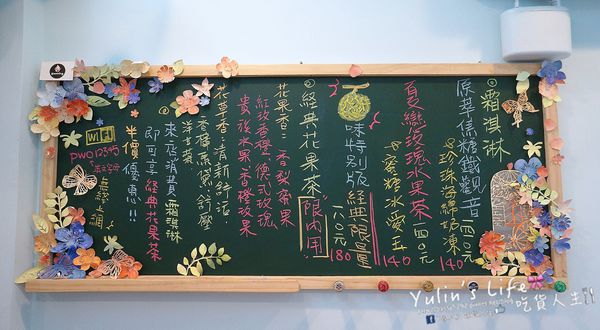 ◎霜淇淋
原萃焦糖鐵觀音 四0元
珍珠海綿奶凍 140
夏戀玫瑰水果茶 四0元
蜜糖冰愛玉 140
味特別版經典限量
一六0元 180
◎經典花果茶 限內用
花果香：香梨蜜果
紅玫香檬、德式玫瑰
貴族水果、香橙玫果
花草香：清新舒活
香檸薰黛、舒壓
洋甘菊
來店消費霜淇淋
即可享經典花果茶
半價優惠!!
WIFI
PWD 12345
無線上網
Yulin's Life
吃貨人生!!